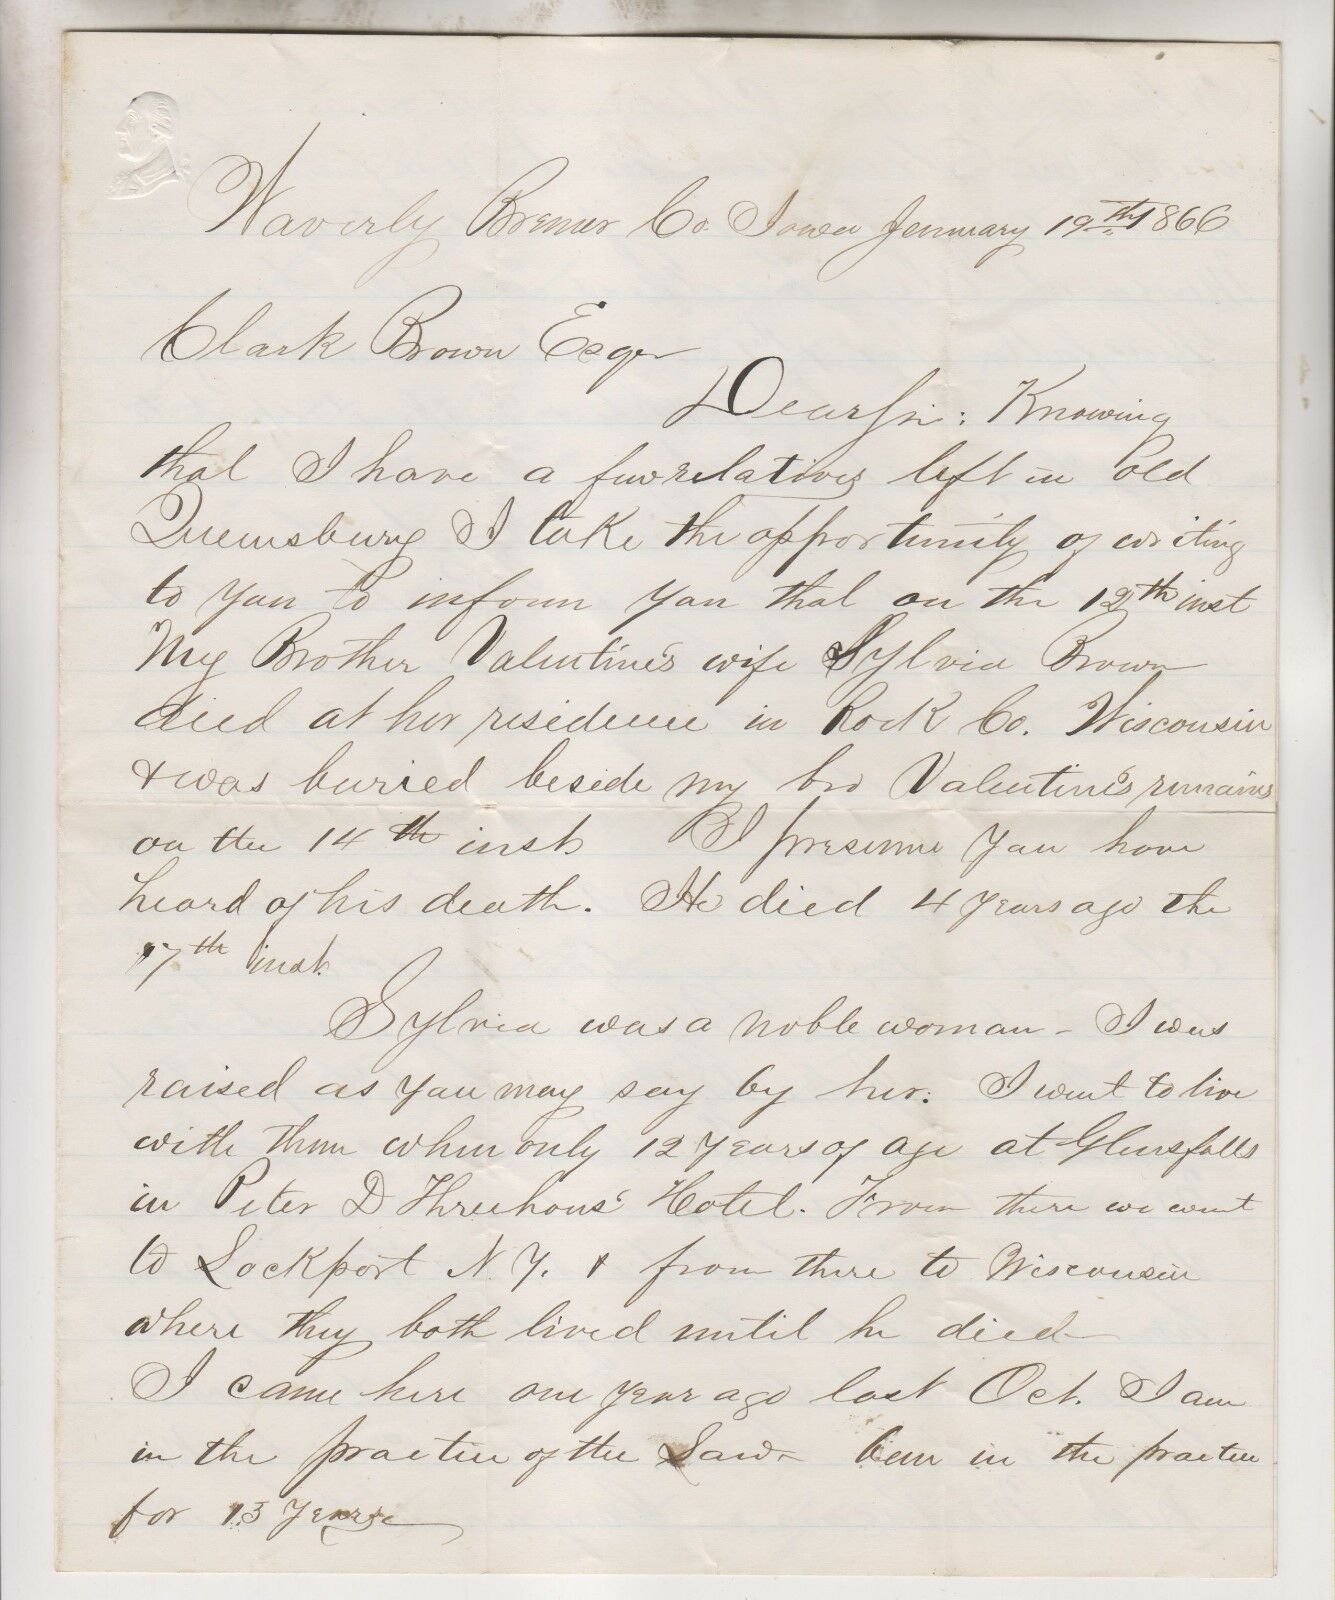 Waverly Bremer Co. Iowa January 19th 1866
Clark Brown Esqr
Dear Sir: Knowing
that I have a few relatives left in old
Queensbury I take the opportunity of writing
to you to inform you that on the 12th inst
My Brother Valentine's wife Sylvia Brown
died at her residence in Rock Co. Wisconsin
& was buried beside my bro Valentine's remains
on the 14th inst I presume you have
heard of his death. He died 4 years ago the
17th inst.
Sylvia was a noble woman - I was
raised as you may say by her. I went to live
with them when only 12 years of age at Glensfalls
in Peter D Threehous' Hotel. From there we went
to Lockport N.Y. & from there to Wisconsin
where they both lived until he died
I came here one year ago last Oct. I am
in the practice of the Law - been in the practice
for 13 years